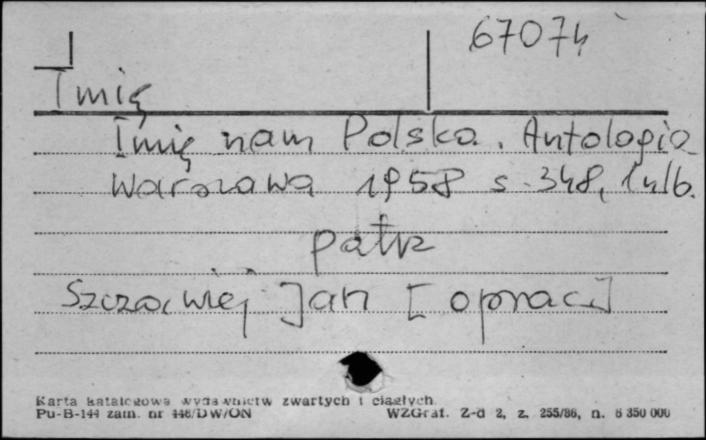 67074
Imię
Imię nam Polska. Antologia
Warszawa 1958 s. 348, 1 nlb.
patrz
Szczawiej Jan [oprac.]
Karta katalogowa wydawnictw zwartych i ciągłych
Pu-B-144 zam. nr 446/DW/ON WZGraf. Z-d 2, z. 255/86, n. 6 350 000